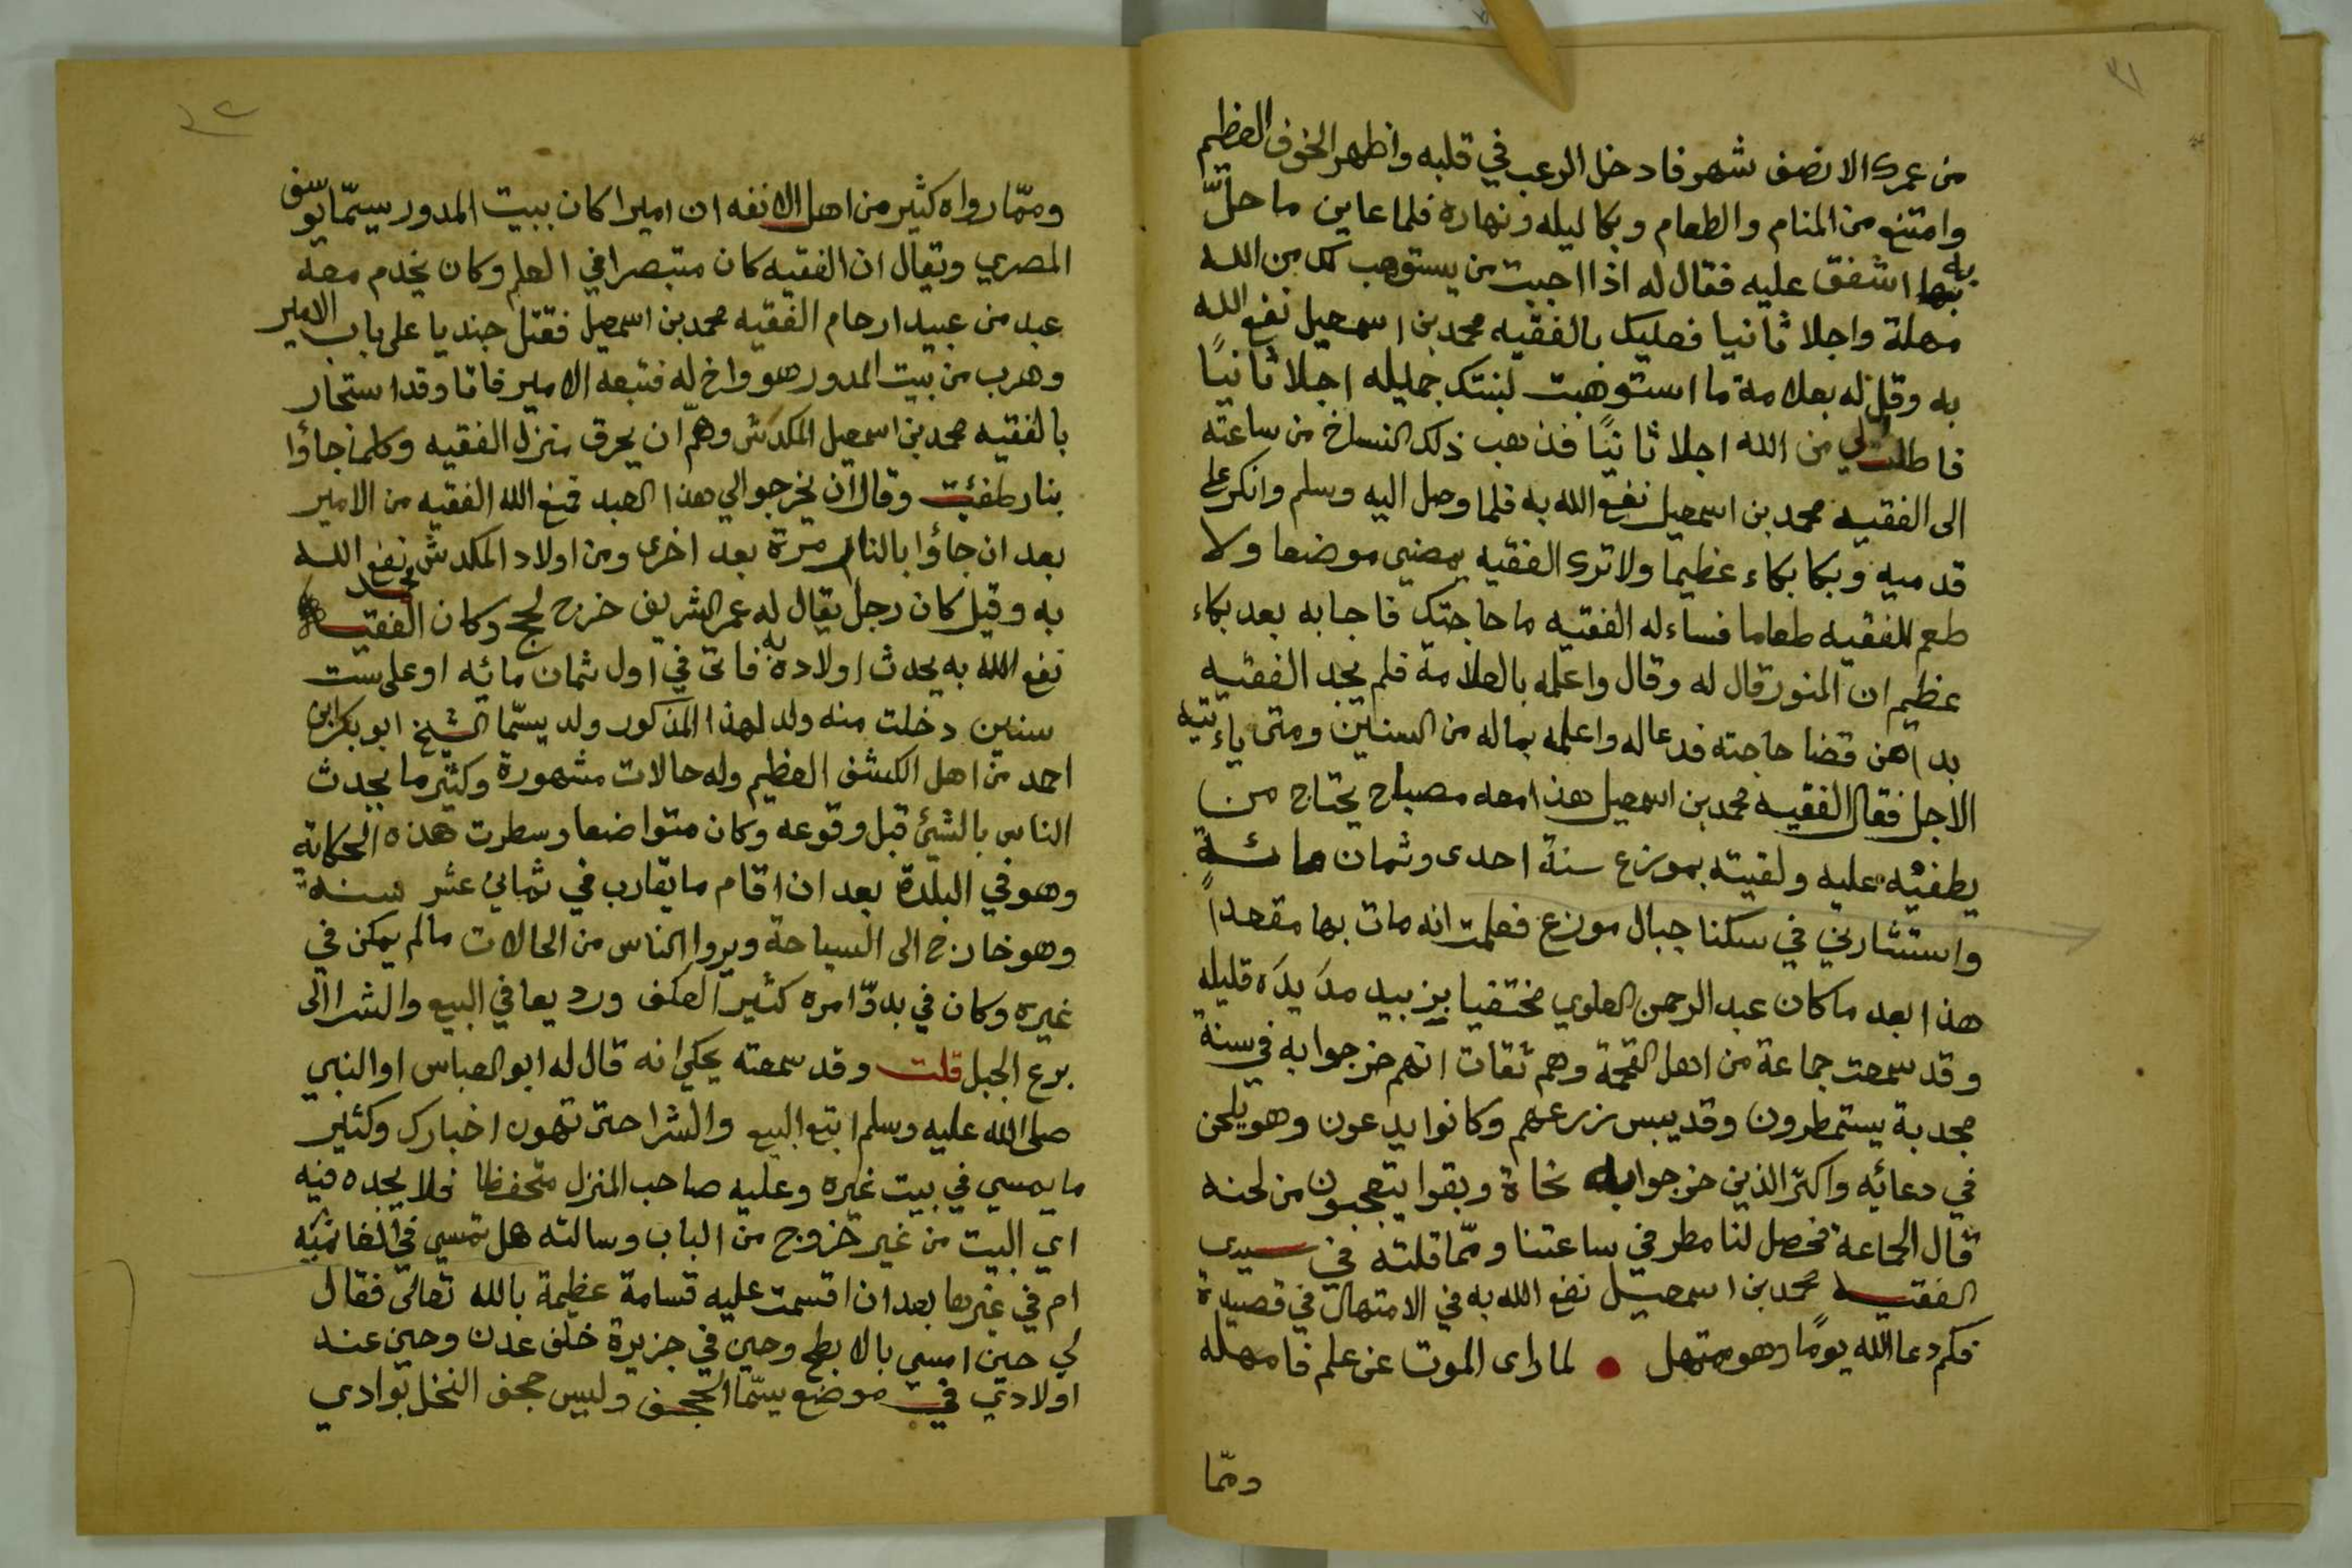 ٢١
من عمرك الا نصف شهر فادخل الرعب في قلبه واظهر الخوف العظيم
وامتنع من المنام والطعام وبكا ليله ونهاره فلما عاين ما حلّ
به اشفق عليه فقال له اذا احببت من يستوهب لك من الله
مهلة واجلا ثانيا فعليك بالفقيه محمد بن اسمعيل نفع الله
به وقل له بعلامة ما استوهبت لبنتك جميله اجلا ثانياً
فاطلب لي من الله اجلا ثانياً فذهب ذلك النساخ من ساعته
الى الفقيه محمد بن اسمعيل نفع الله به فلما وصل اليه وسلم وانكر على
قدميه وبكا بكاء عظيما ولا ترك الفقيه يمضي موضعا ولا
طعم للفقيه طعاما فساءله الفقيه ما حاجتك فاجابه بعد بكاء
عظيم ان المنور قال له وقال واعلمه بالعلامة فلم يجد الفقيه
بدا من قضا حاجته فدعا له واعلمه بماله من السنين ومتى ياءتيه
الاجل فقال الفقيه محمد بن اسمعيل هذا معه مصباح يحتاج من
يطفئه عليه ولقيته بموزع سنة احدى وثمان مائة
واستشارني في سكنا جبال موزع فعلمت انه مات بها مقعداً
هذا بعد ما كان عبد الرحمن العلوي مختفيا بزبيد مديده قليله
وقد سمعت جماعة من اهل القحمة وهم ثقات انهم خرجوا به في سنة
مجدبة يستمطرون وقد يبس زرعهم وكانوا يدعون وهو يلحن
في دعائه واكثر الذين خرجوا به نحاة وبقوا يتعجبون من لحنه
قال الجماعة فحصل لنا مطر في ساعتنا وممّا قلته في سيدي
الفقيه محمد بن اسمعيل نفع الله به في الامتهال في قصيدة
فكم دعا الله يومًا وهو مبتهل • لما راى الموت عن علم فامهله
وممّا
٢٢
وممّا رواه كثير من اهل الانفه ان اميرا كان ببيت المدور يسمّا يوسف
المصري ويقال ان الفقيه كان متبصرا في العلم وكان يخدم معه
عبد من عبيد ارحام الفقيه محمد بن اسمعيل فقتل جنديا على باب الامير
وهرب من بيت المدور هو واخ له فتبعه الامير فاتا وقد استجار
بالفقيه محمد بن اسمعيل المكدش وهمّ ان يحرق منزل الفقيه وكلما جاؤا
بنار طفئت وقال ان يخرجوا لي هذا العبد فمنع الله الفقيه من الامير
بعد ان جاؤا بالنار مرة بعد اخرى ومن اولاد المكدش نفع الله
به وقيل كان رجل يقال له عمر الشريف خرج لحج وكان الفقيه محمد
نفع الله به يحدث اولاده به فاتى في اول ثمان مائه او على ست
سنين دخلت منه ولد لهذا المذكور ولد يسمّا الشيخ ابو بكر ابن
احمد من اهل الكشف العظيم وله حالات مشهورة وكثير ما يحدث
الناس بالشيئ قبل وقوعه وكان متواضعا وسطرت هذه الحكاية
وهو في البلدة بعد ان اقام ما يقارب في ثماني عشر سنة
وهو خارج الى السياحة ويروا الناس من الحالات مالم يمكن في
غيره وكان في بدوّ امره كثير العكف ورديعا في البيع والشرا الى
برع الجبل قلت وقد سمعته يحكي انه قال له ابو العباس او النبي
صلى الله عليه وسلم ابتع البيع والشرا حتى تهون اخبارك وكثير
ما يمسي في بيت غيره وعليه صاحب المنزل متحفظا فلا يجده فيه
اي البيت من غير خروج من الباب وسالته هل تمسي في الغانميّه
ام في غيرها بعد ان اقسمت عليه قسامة عظيمة بالله تعالى فقال
لي حين امسي بالابطح وحين في جزيرة خلف عدن وحين عند
اولادي في موضع يسمّا الججف وليس ججف النخل بوادي